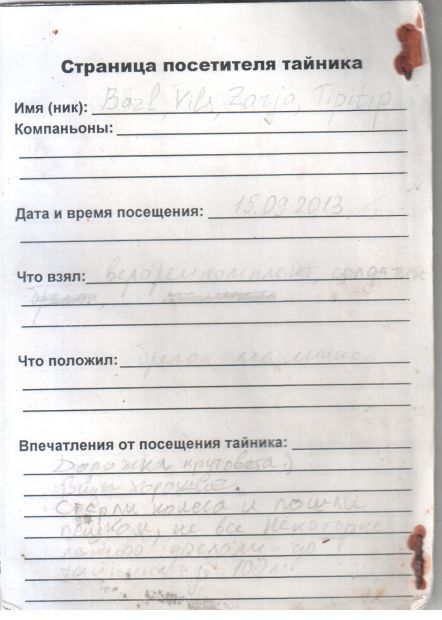 Страница посетителя тайника
Имя (ник): Bazl, Vils, Zarja, Tipitip
Компаньоны:
Дата и время посещения: 15.09.2013
Что взял: велоремкомплект,
брелок,
Что положил: брелок, машинка
Впечатления от посещения тайника:
Дорожка крутовата :)
Виды хорошие.
Стёрли колеса и пошли
пешком, не все. Некоторые
доехали до
тайника 100м